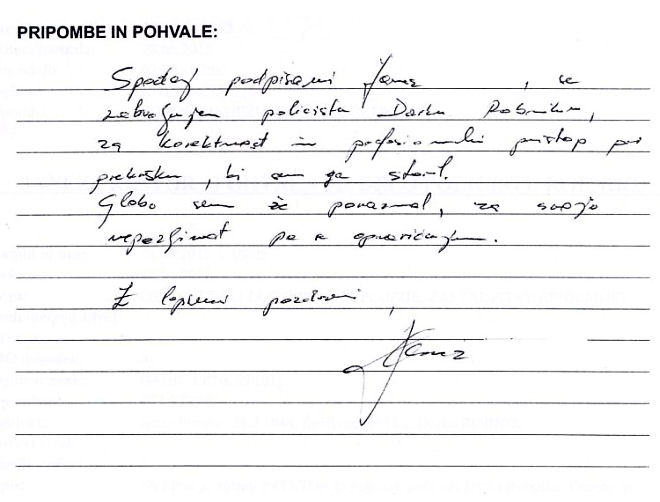 PRIPOMBE IN POHVALE:
Spodaj podpisani Janez , se
zahvaljujem policistu Darku Robniku,
za korektnost in profesionalni pristop pri
prekršku, ki sem ga storil.
Globo sem že poravnal, za svojo
nepazljivost pa se opravičujem.
Z lepimi pozdravi,
Janez